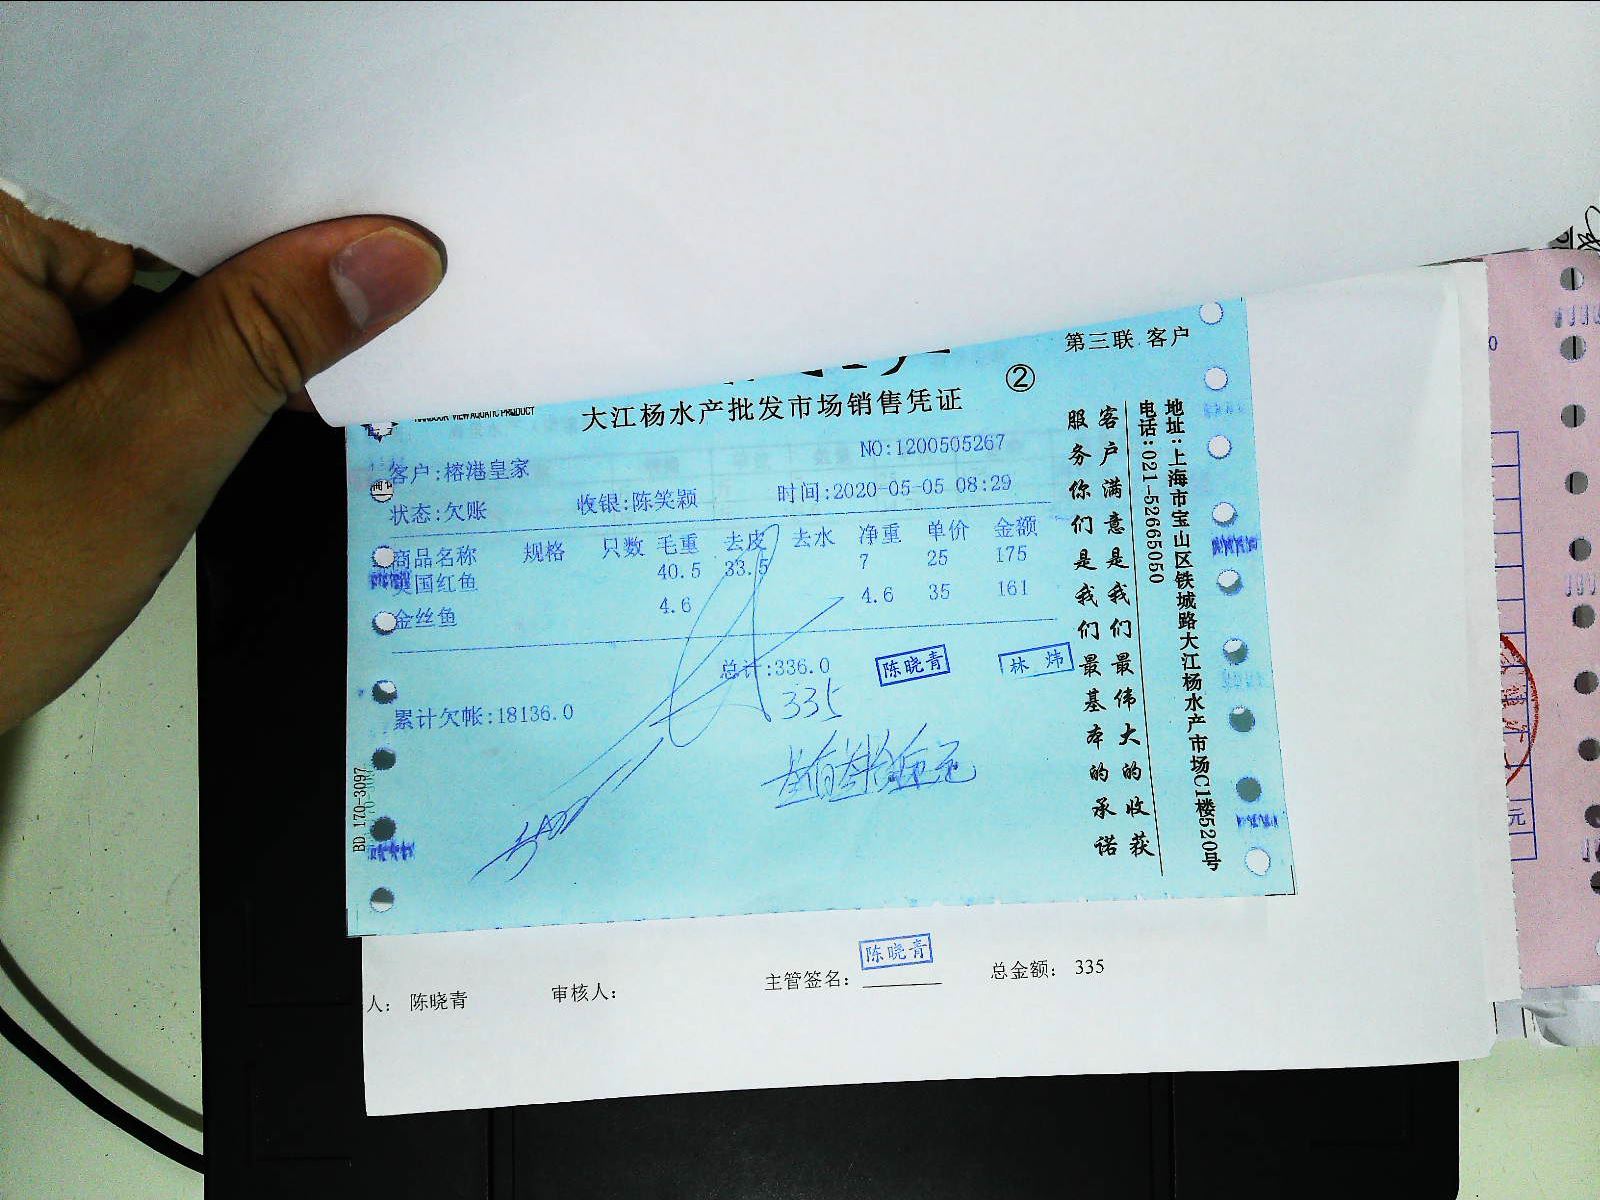 第三联 客户
②
HARBOUR VIEW AQUATIC PRODUCT
大江杨水产批发市场销售凭证
NO:1200505267
客户:榕港皇家
状态:欠账 收银:陈笑颖 时间:2020-05-05 08:29
商品名称 规格 只数 毛重 去皮 去水 净重 单价 金额
美国红鱼 40.5 33.5 7 25 175
金丝鱼 4.6 4.6 35 161
总计:336.0
陈晓青
林炜
335
叁佰叁拾伍元
累计欠帐:18136.0
BD 170-3097
客户满意是我们最伟大的收获
服务你们是我们最基本的承诺
地址:上海市宝山区铁城路大江杨水产市场C1楼520号
电话:021-52665050
人: 陈晓青 审核人: 主管签名: 陈晓青 总金额: 335
元